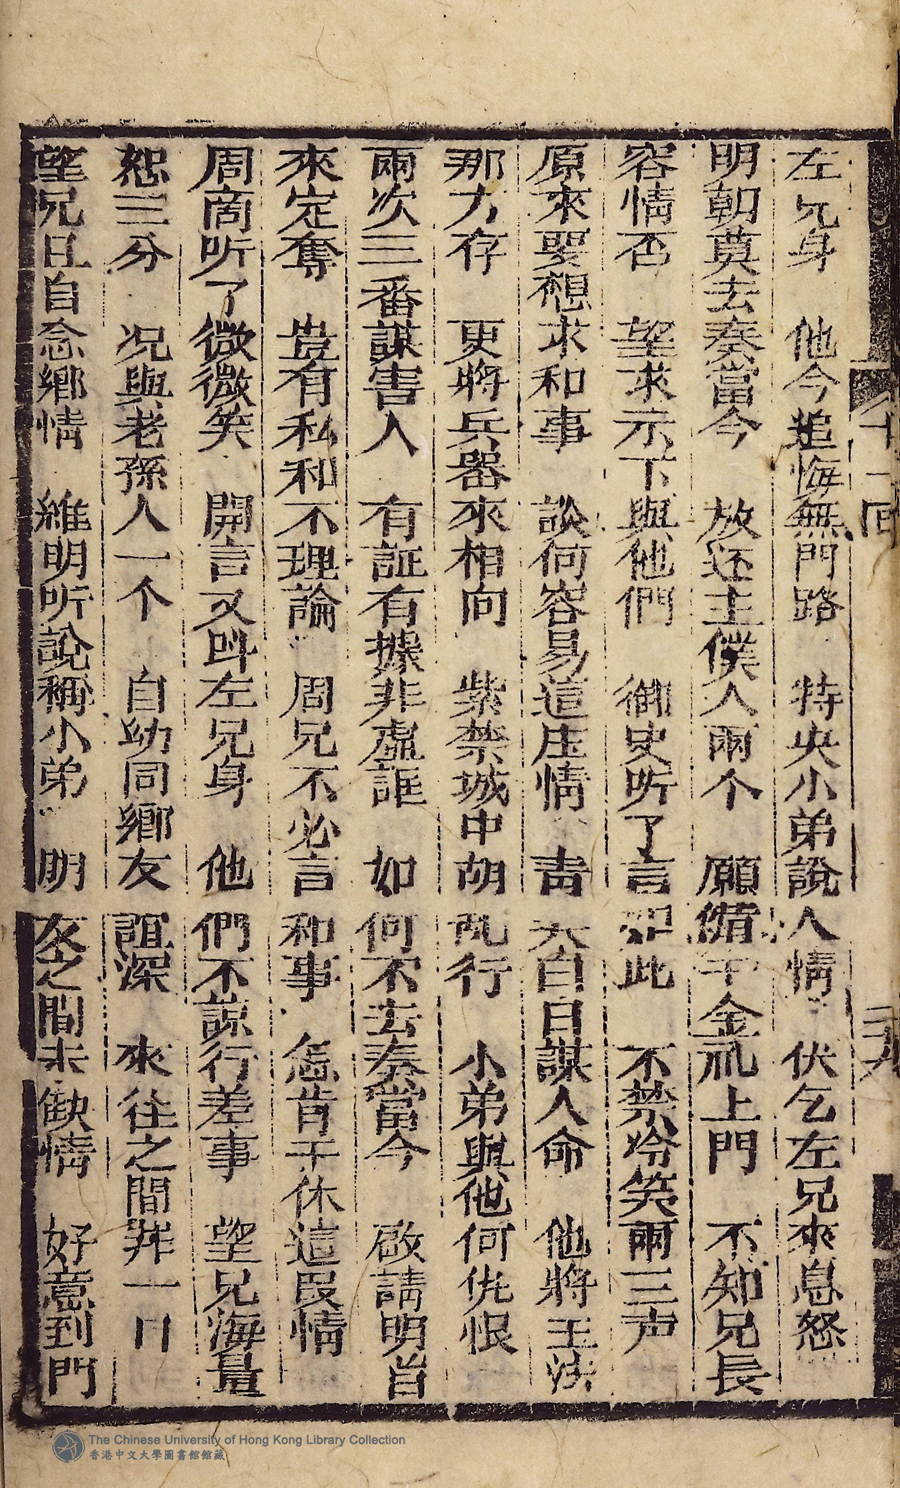 左兄身　他今追悔無門路　特央小弟說人情　伏乞左兄來息怒
明朝莫去奏當今　放还主僕人兩个　願備千金礼上門　不知兄長
容情否　望求示下與他們　御史听了言如此　不禁冷笑兩三声
原來要想求和事　談何容易這庄情　青天白日謀人命　他將王法
那方存　更將兵器來相向　紫禁城中胡乱行　小弟與他何仇恨
兩次三番謀害人　有証有據非虛誑　如何不去奏當今　啟請明旨
來定奪　豈有私和不理論　周兄不必言和事　怎肯干休這段情
周啇听了微微笑　開言又呌左兄身　他們不諒行差事　望兄海量
恕三分　况與老孫人一个　自幼同鄉友誼深　來往之間非一日
望兄且自念鄉情　維明听說稱小弟　朋友之間未缺情　好意到門
十一回
The Chinese University of Hong Kong Library Collection
香港中文大學圖書館館藏